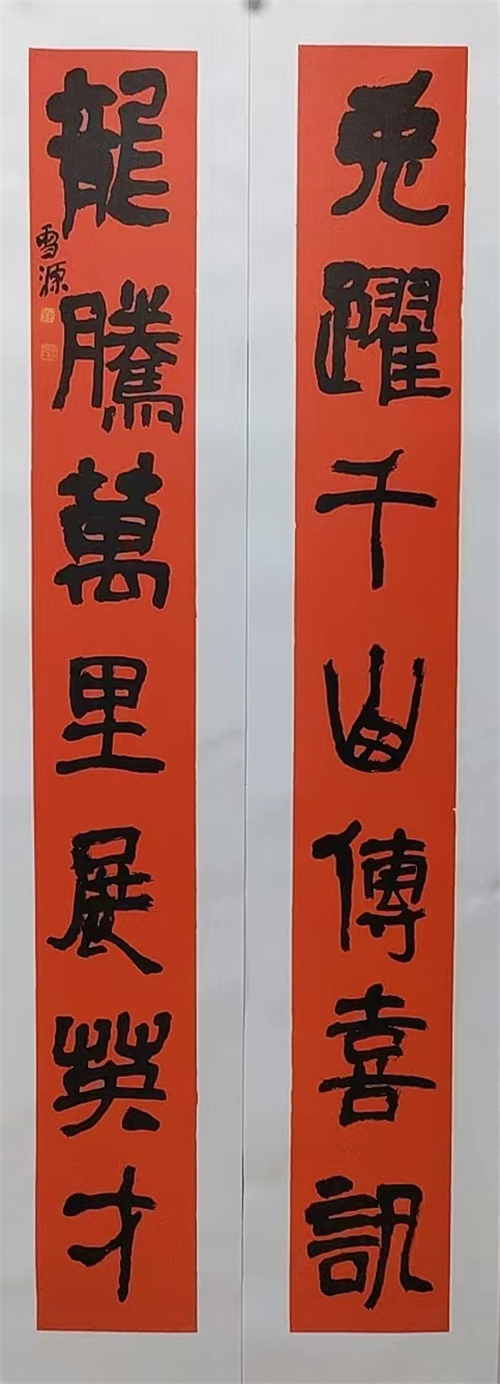 兎躍千山傳喜訊
龍騰萬里展英才
雪源